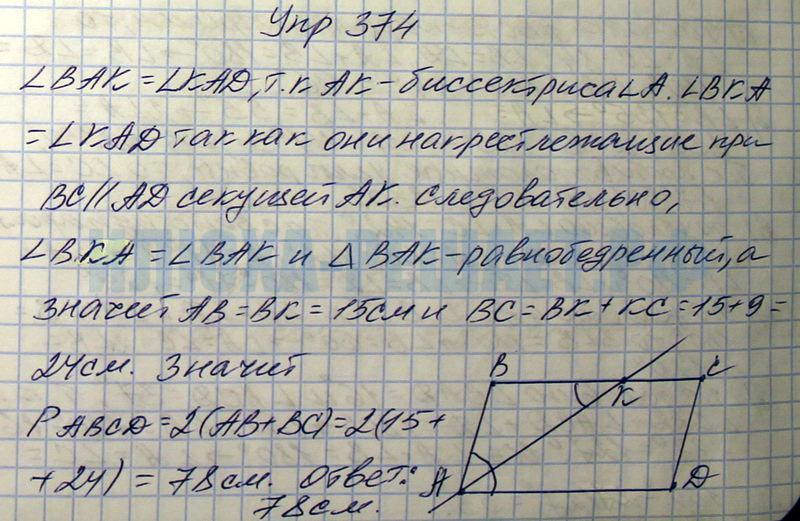 Упр 374
∠BAK = ∠KAD, т.к AK - биссектриса ∠A. ∠BKA
= ∠KAD так как они накрестлежащие при
BC || AD секущей AK. следовательно,
∠BKA = ∠BAK и △ BAK - равнобедренный, а
значит AB = BK = 15см и BC = BK + KC = 15 + 9 =
24см. Значит
P ABCD = 2(AB + BC) = 2(15 +
+ 24) = 78см. Ответ:
78см.
B
K
C
A
D